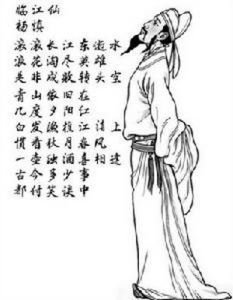 临江仙
杨慎
滚滚长江东逝水
浪花淘尽英雄
是非成败转头空
青山依旧在
几度夕阳红
白发渔樵江渚上
惯看秋月春风
一壶浊酒喜相逢
古今多少事
都付笑谈中